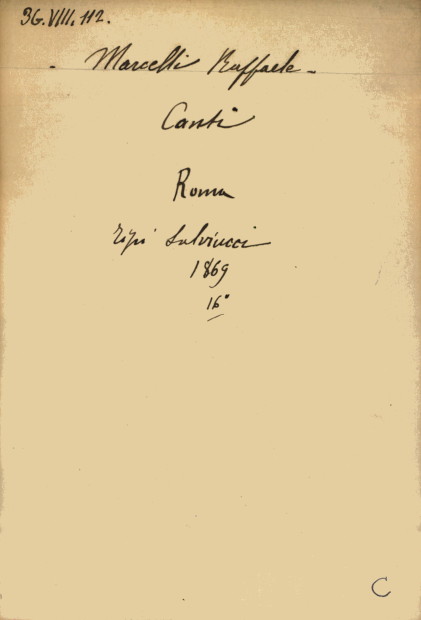 36.VIII.112.
- Marcelli Raffaele -
Canti
Roma
Tipi Salviucci
1869
16°
C